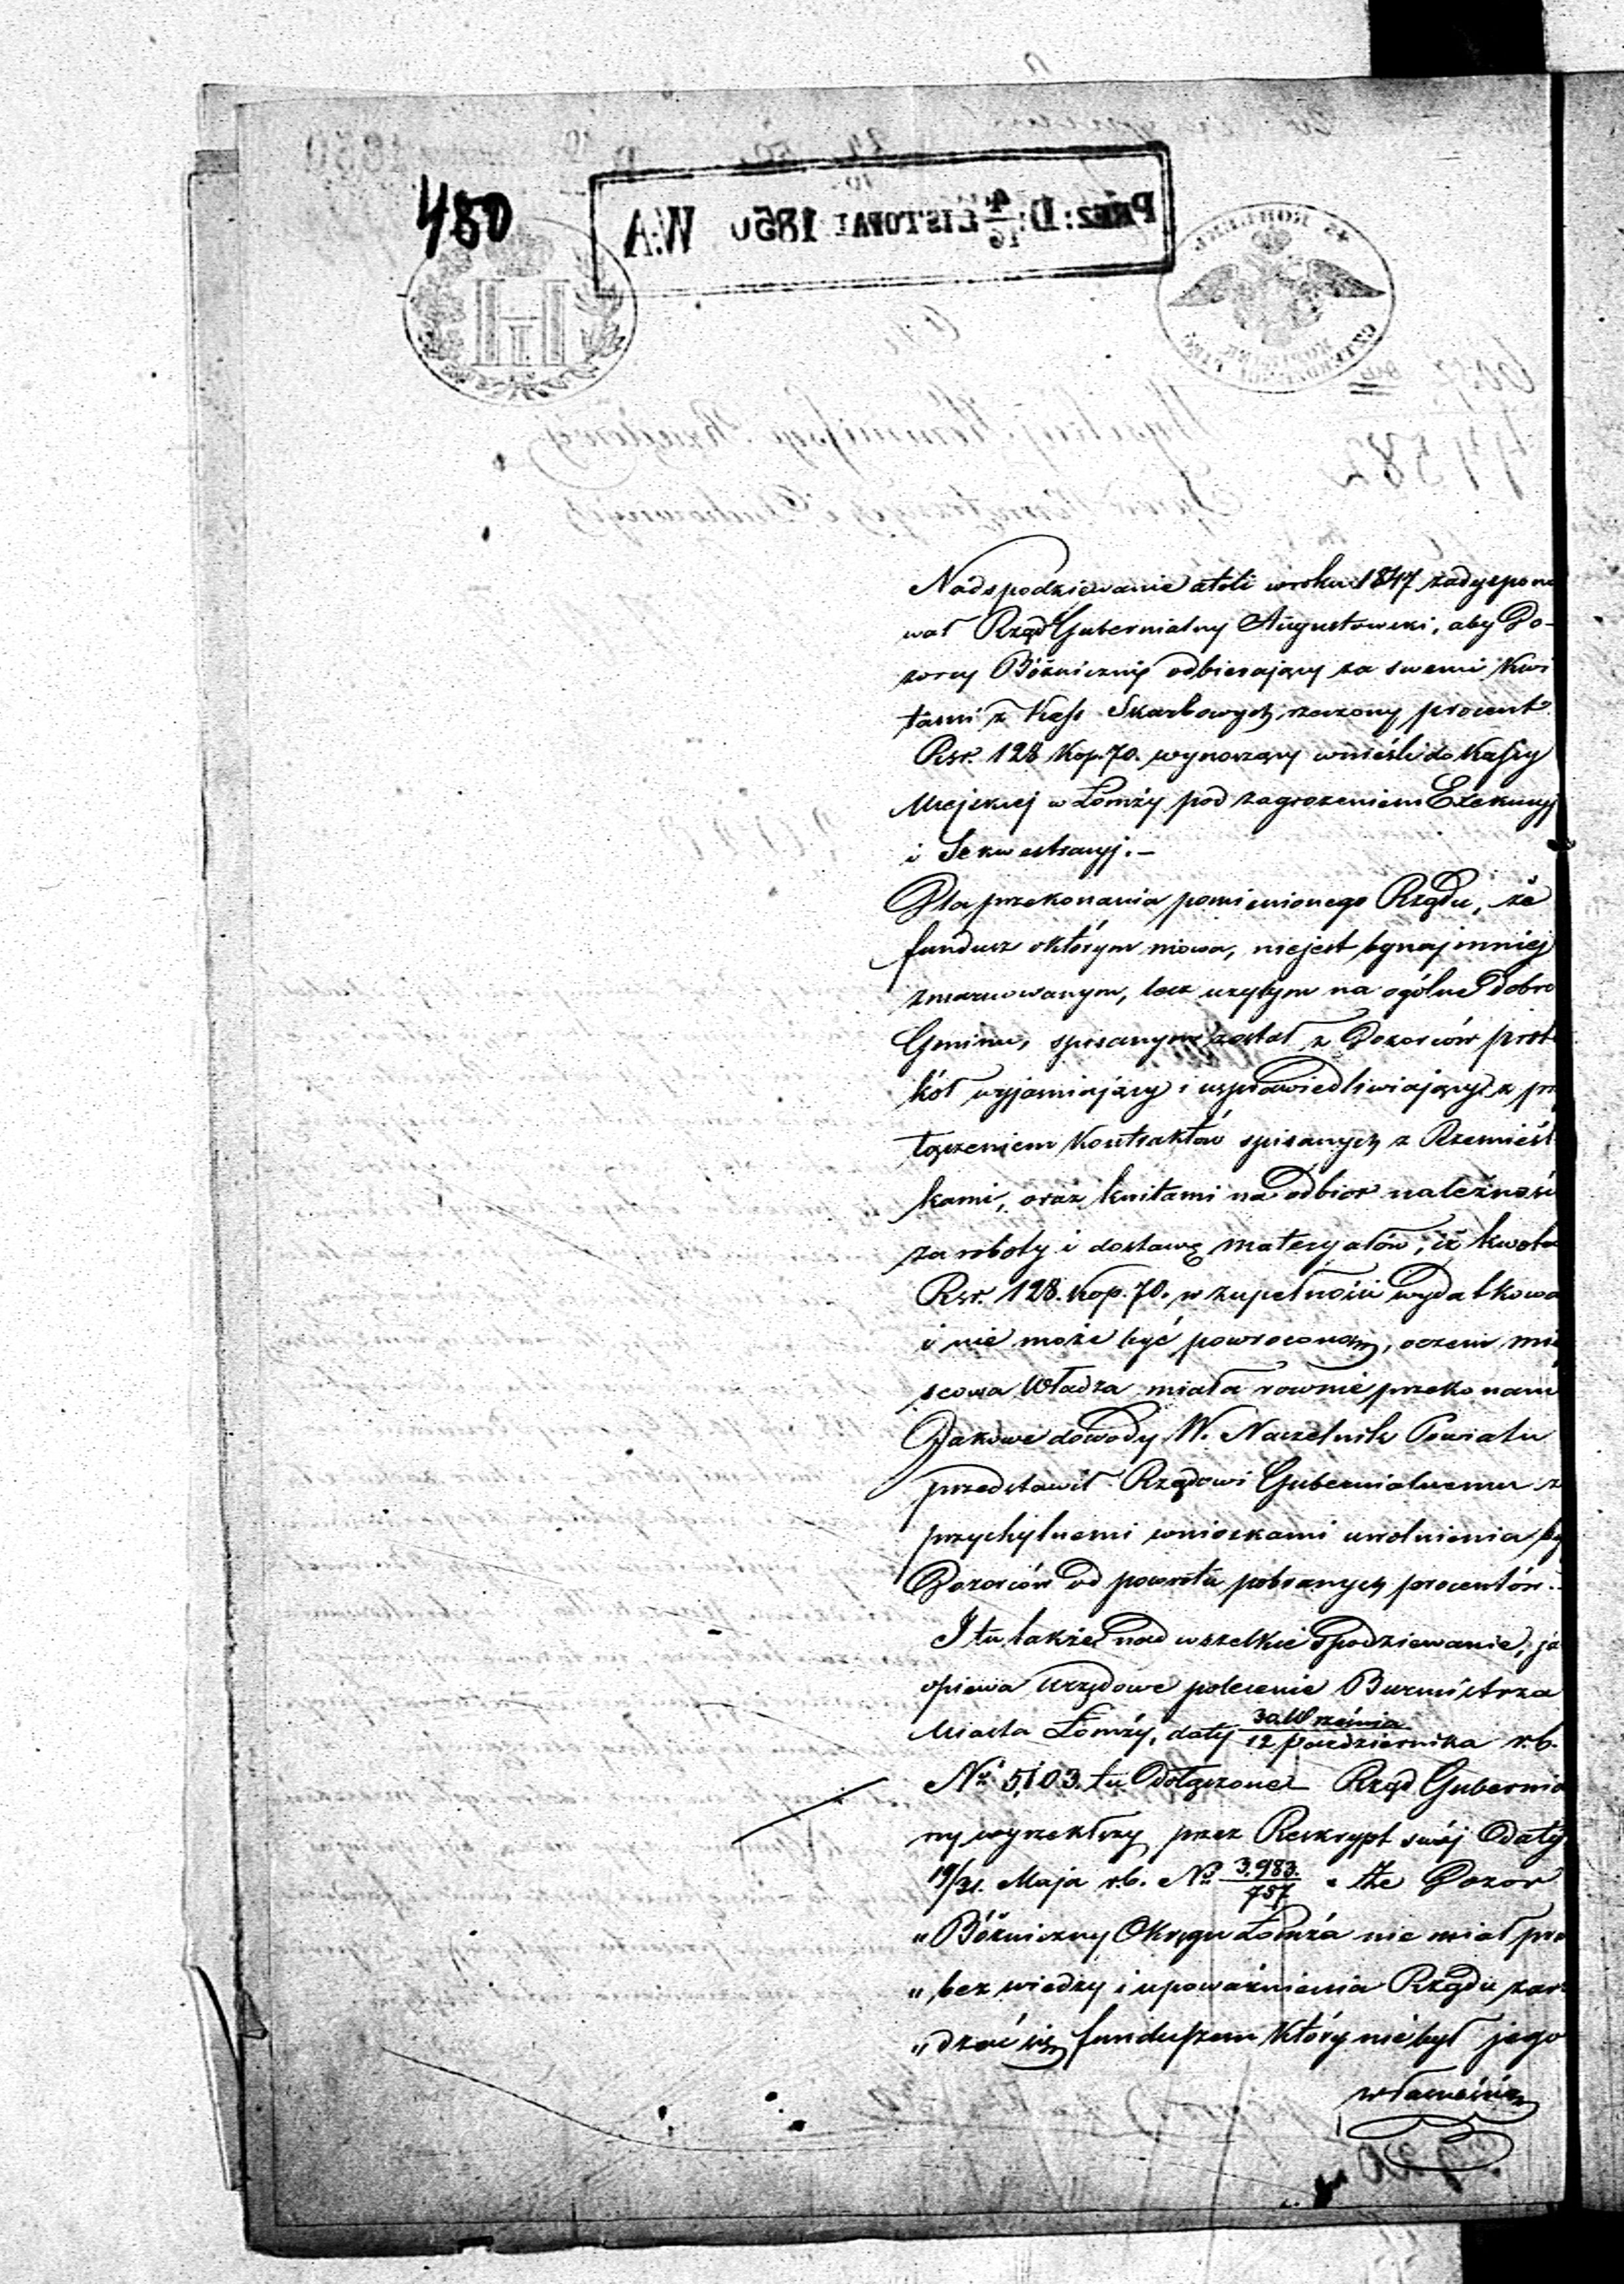 480
PREZ: D: 4/16 LISTOPAD 1850 W:A
Nadspodziewanie atoli w roku 1847 zadyspono
wał Rząd Gubernialny Augustowski, aby Do-
zorcy Bóżniczni odbierający za swemi Kwi
tami z Kass Skarbowych, rzeczony procent
Rsr. 128 Kop. 70. wynoszący wnieśli do Kassy
Miejskiej w Łomży pod zagrożeniem Exekucyj
i Sekwestracyj.-
Dla przekonania pomienionego Rządu, że
fundusz o którym mowa, niejest bynajmniej
zmarnowanym, lecz użytym na ogólne dobro
Gminu, spisanym został z Dozorców proto
kół wyjaśniający i usprawiedliwiający z przy
łączeniem Kontraktów spisanych z Rzemieśl
kami, oraz kwitami na odbior należności
za roboty i dostawę materyałów, iż kwota
Rsr. 128. Kop. 70. w zupełności wydatkowa
i nie może być powroconą, o czem miej
scowa Władza miała rownie przekonani
Jakowe dowody W. Naczelnik Powiatu
przedstawił Rządowi Gubernialnemu z
przychylnemi wnioskami uwolnienia by
Dozorców od powrotu pobranych procentów.
I tu także nad wszelkie spodziewanie, ja
opiewa urzędowe polecenie Burmistrza
Miasta Łomży, daty 30 Września / 12 Października r.b.
No 5,103. tu dołączone Rząd Gubernial
ny wyrzekłszy przez Reskrypt swój daty
19/31. Maja r.b. No 3.983. / 757 „ że Dozor
„ Bóżniczny Okręgu Łomża nie miał pra
„ bez wiedzy i upoważnienia Rządu zarzą
„ dzać się funduszem który nie był jego
własnością